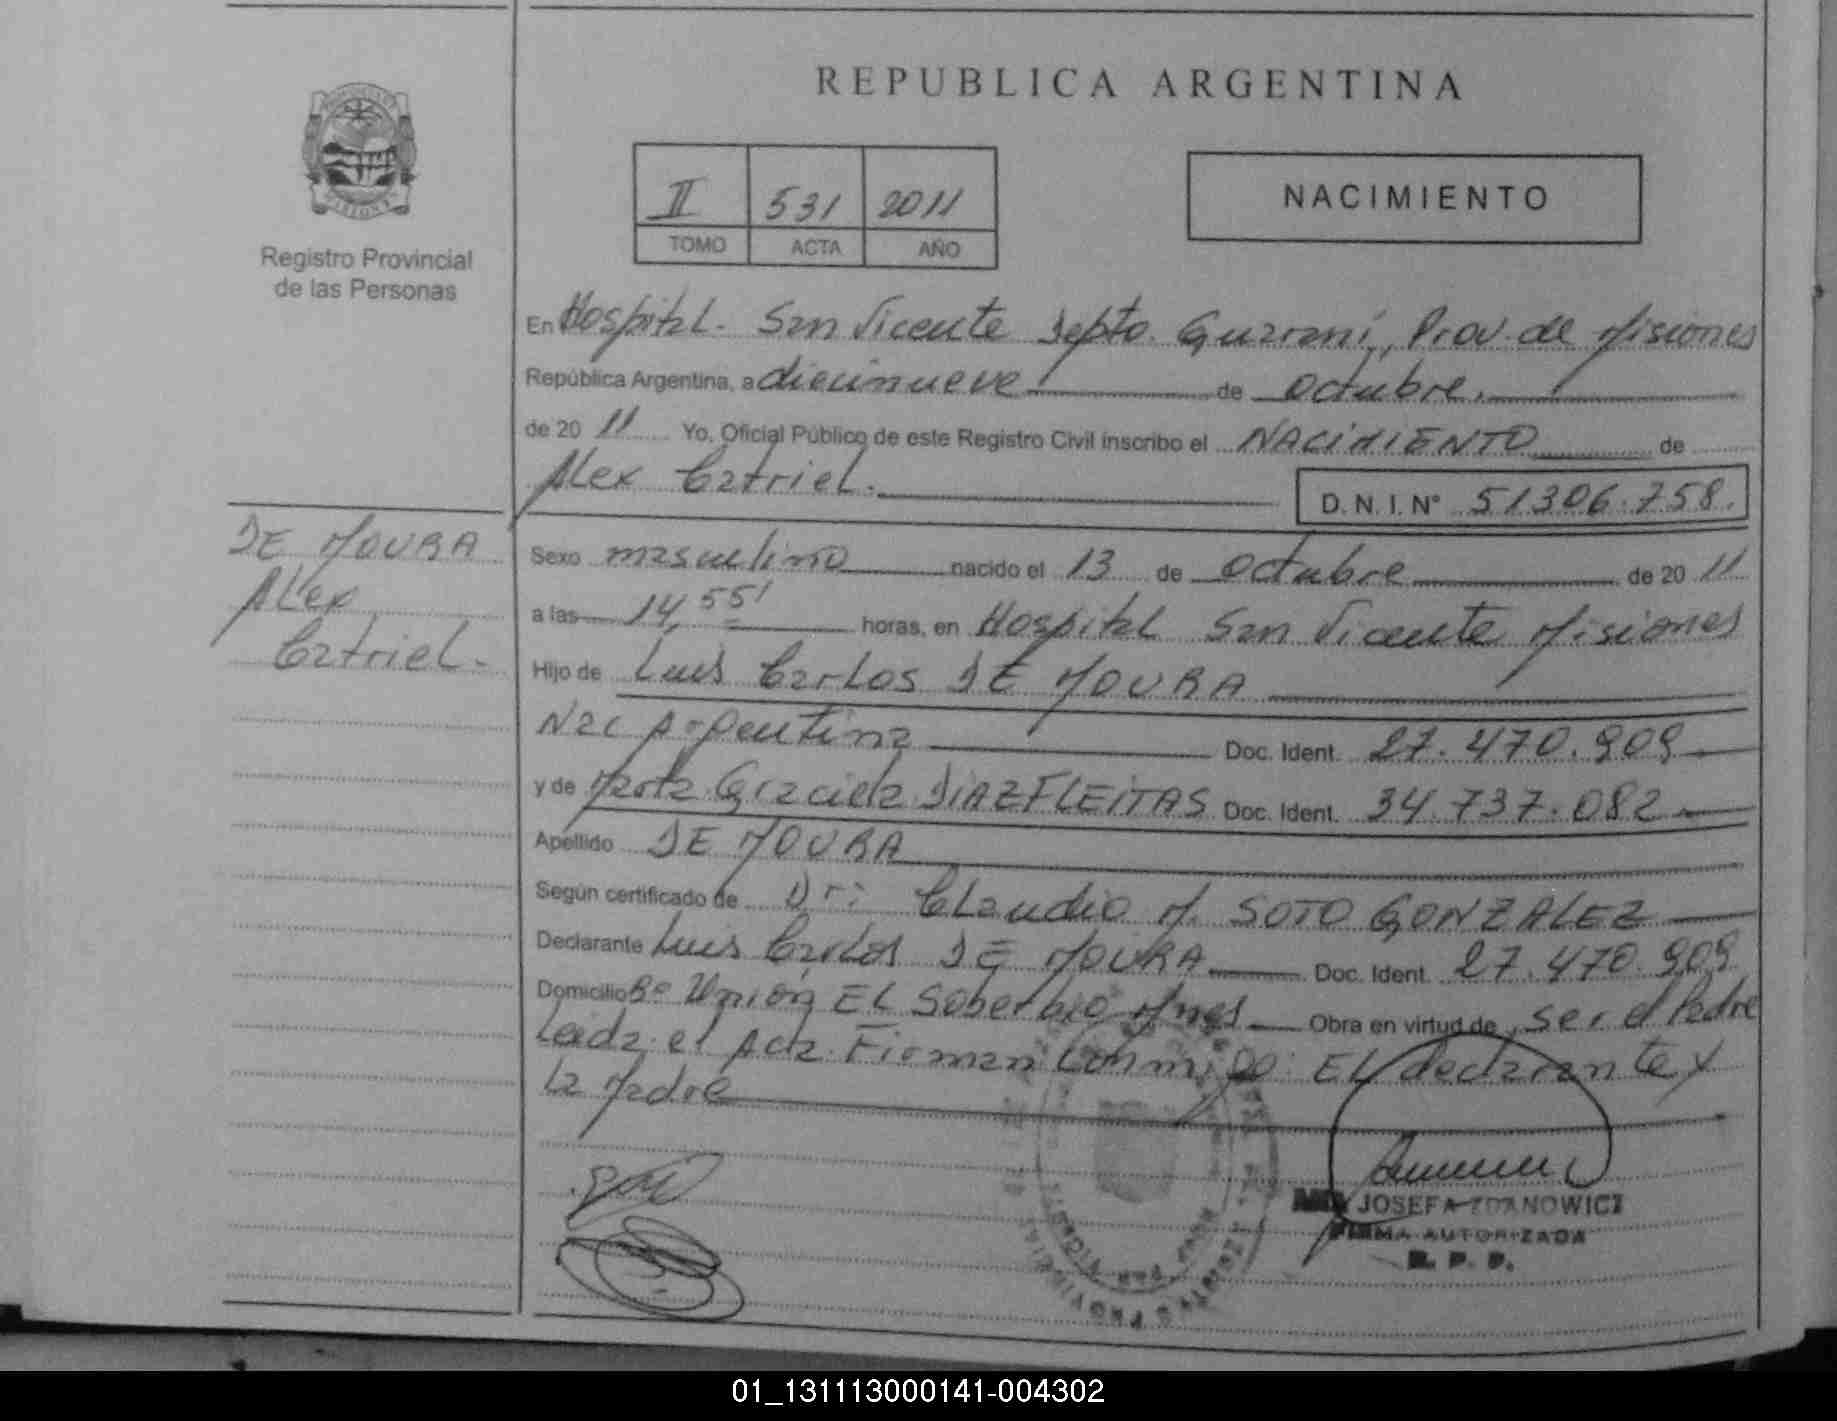 REPUBLICA ARGENTINA
II 531 2011
TOMO ACTA AÑO
NACIMIENTO
Registro Provincial
de las Personas
En Hospital. San Vicente Depto. Guaraní, Prov. de Misiones
República Argentina, a diecinueve de octubre.
de 20 11 Yo, Oficial Público de este Registro Civil inscribo el NACIMIENTO de
Alex Catriel.
D. N. I. N° 51306.758.
DE MOURA
Alex
Catriel.
Sexo masculino nacido el 13 de octubre de 20 11
a las 14,55' horas, en Hospital San Vicente Misiones
Hijo de Luis Carlos DE MOURA
Nac Argentina Doc. Ident. 27.470.909
y de Marta Graciela DIAZ FLEITAS Doc. Ident. 34.737.082
Apellido DE MOURA
Según certificado de Dr: Claudio M. SOTO GONZALEZ
Declarante Luis Carlos DE MOURA Doc. Ident. 27.470.909
Domicilio B° Unión EL Soberbio Mnes Obra en virtud de ser el Padre
Leida el Acta Firman Conmigo: EL declarante y
La Madre
JOSEFA ZDANOWICZ
FIRMA AUTORIZADA
R. P. P.
01_131113000141-004302